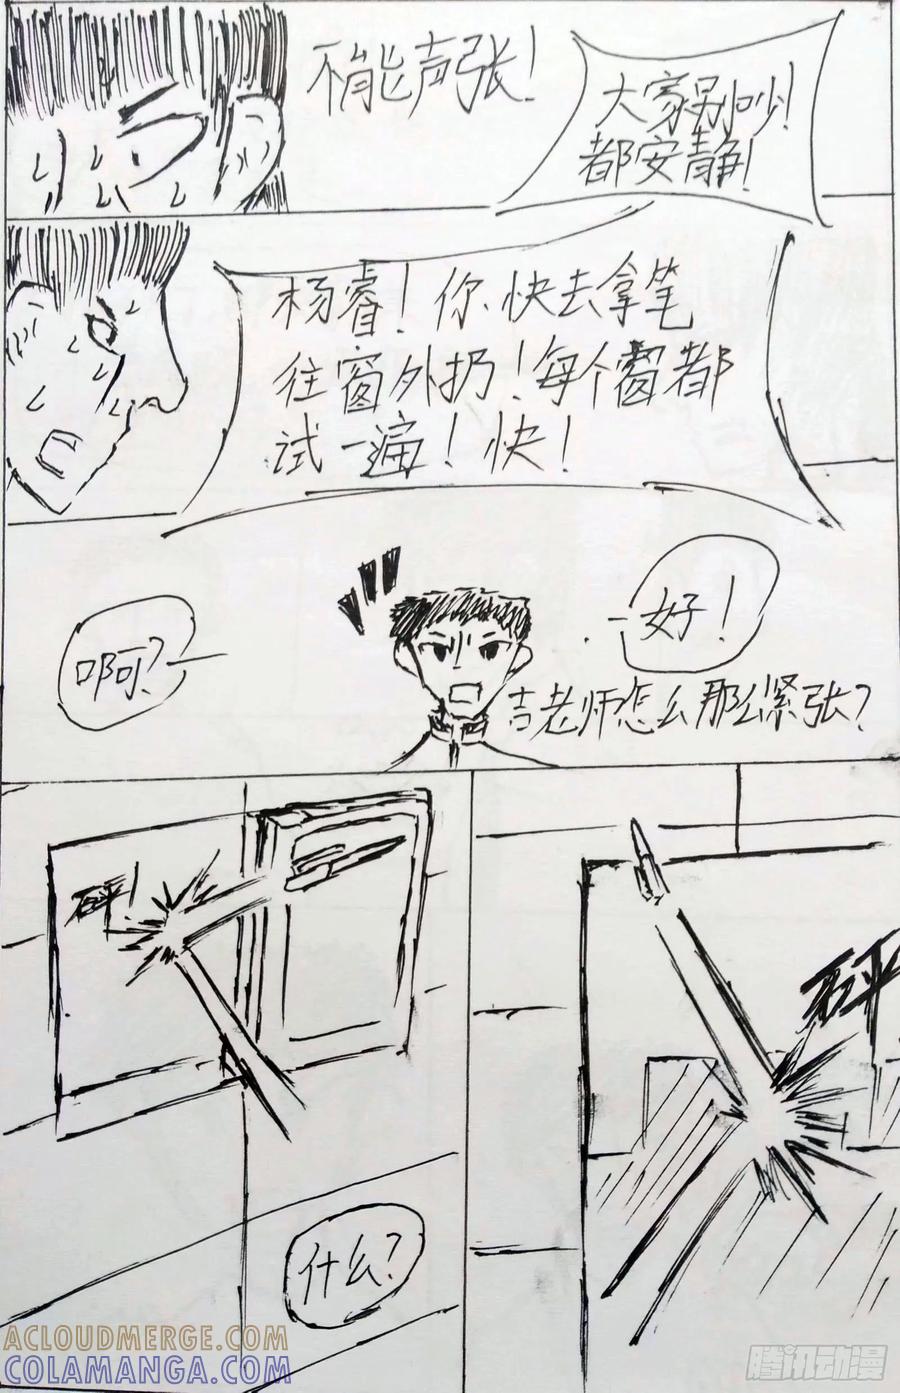 不能声张!
大家别吵!
都安静!
杨睿!你快去拿笔
往窗外扔!每个窗都
试一遍!快!
啊?
好!
吉老师怎么那么紧张?
砰!
砰
什么?
ACLOUDMERGE.COM
COLAMANGA.COM
腾讯动漫